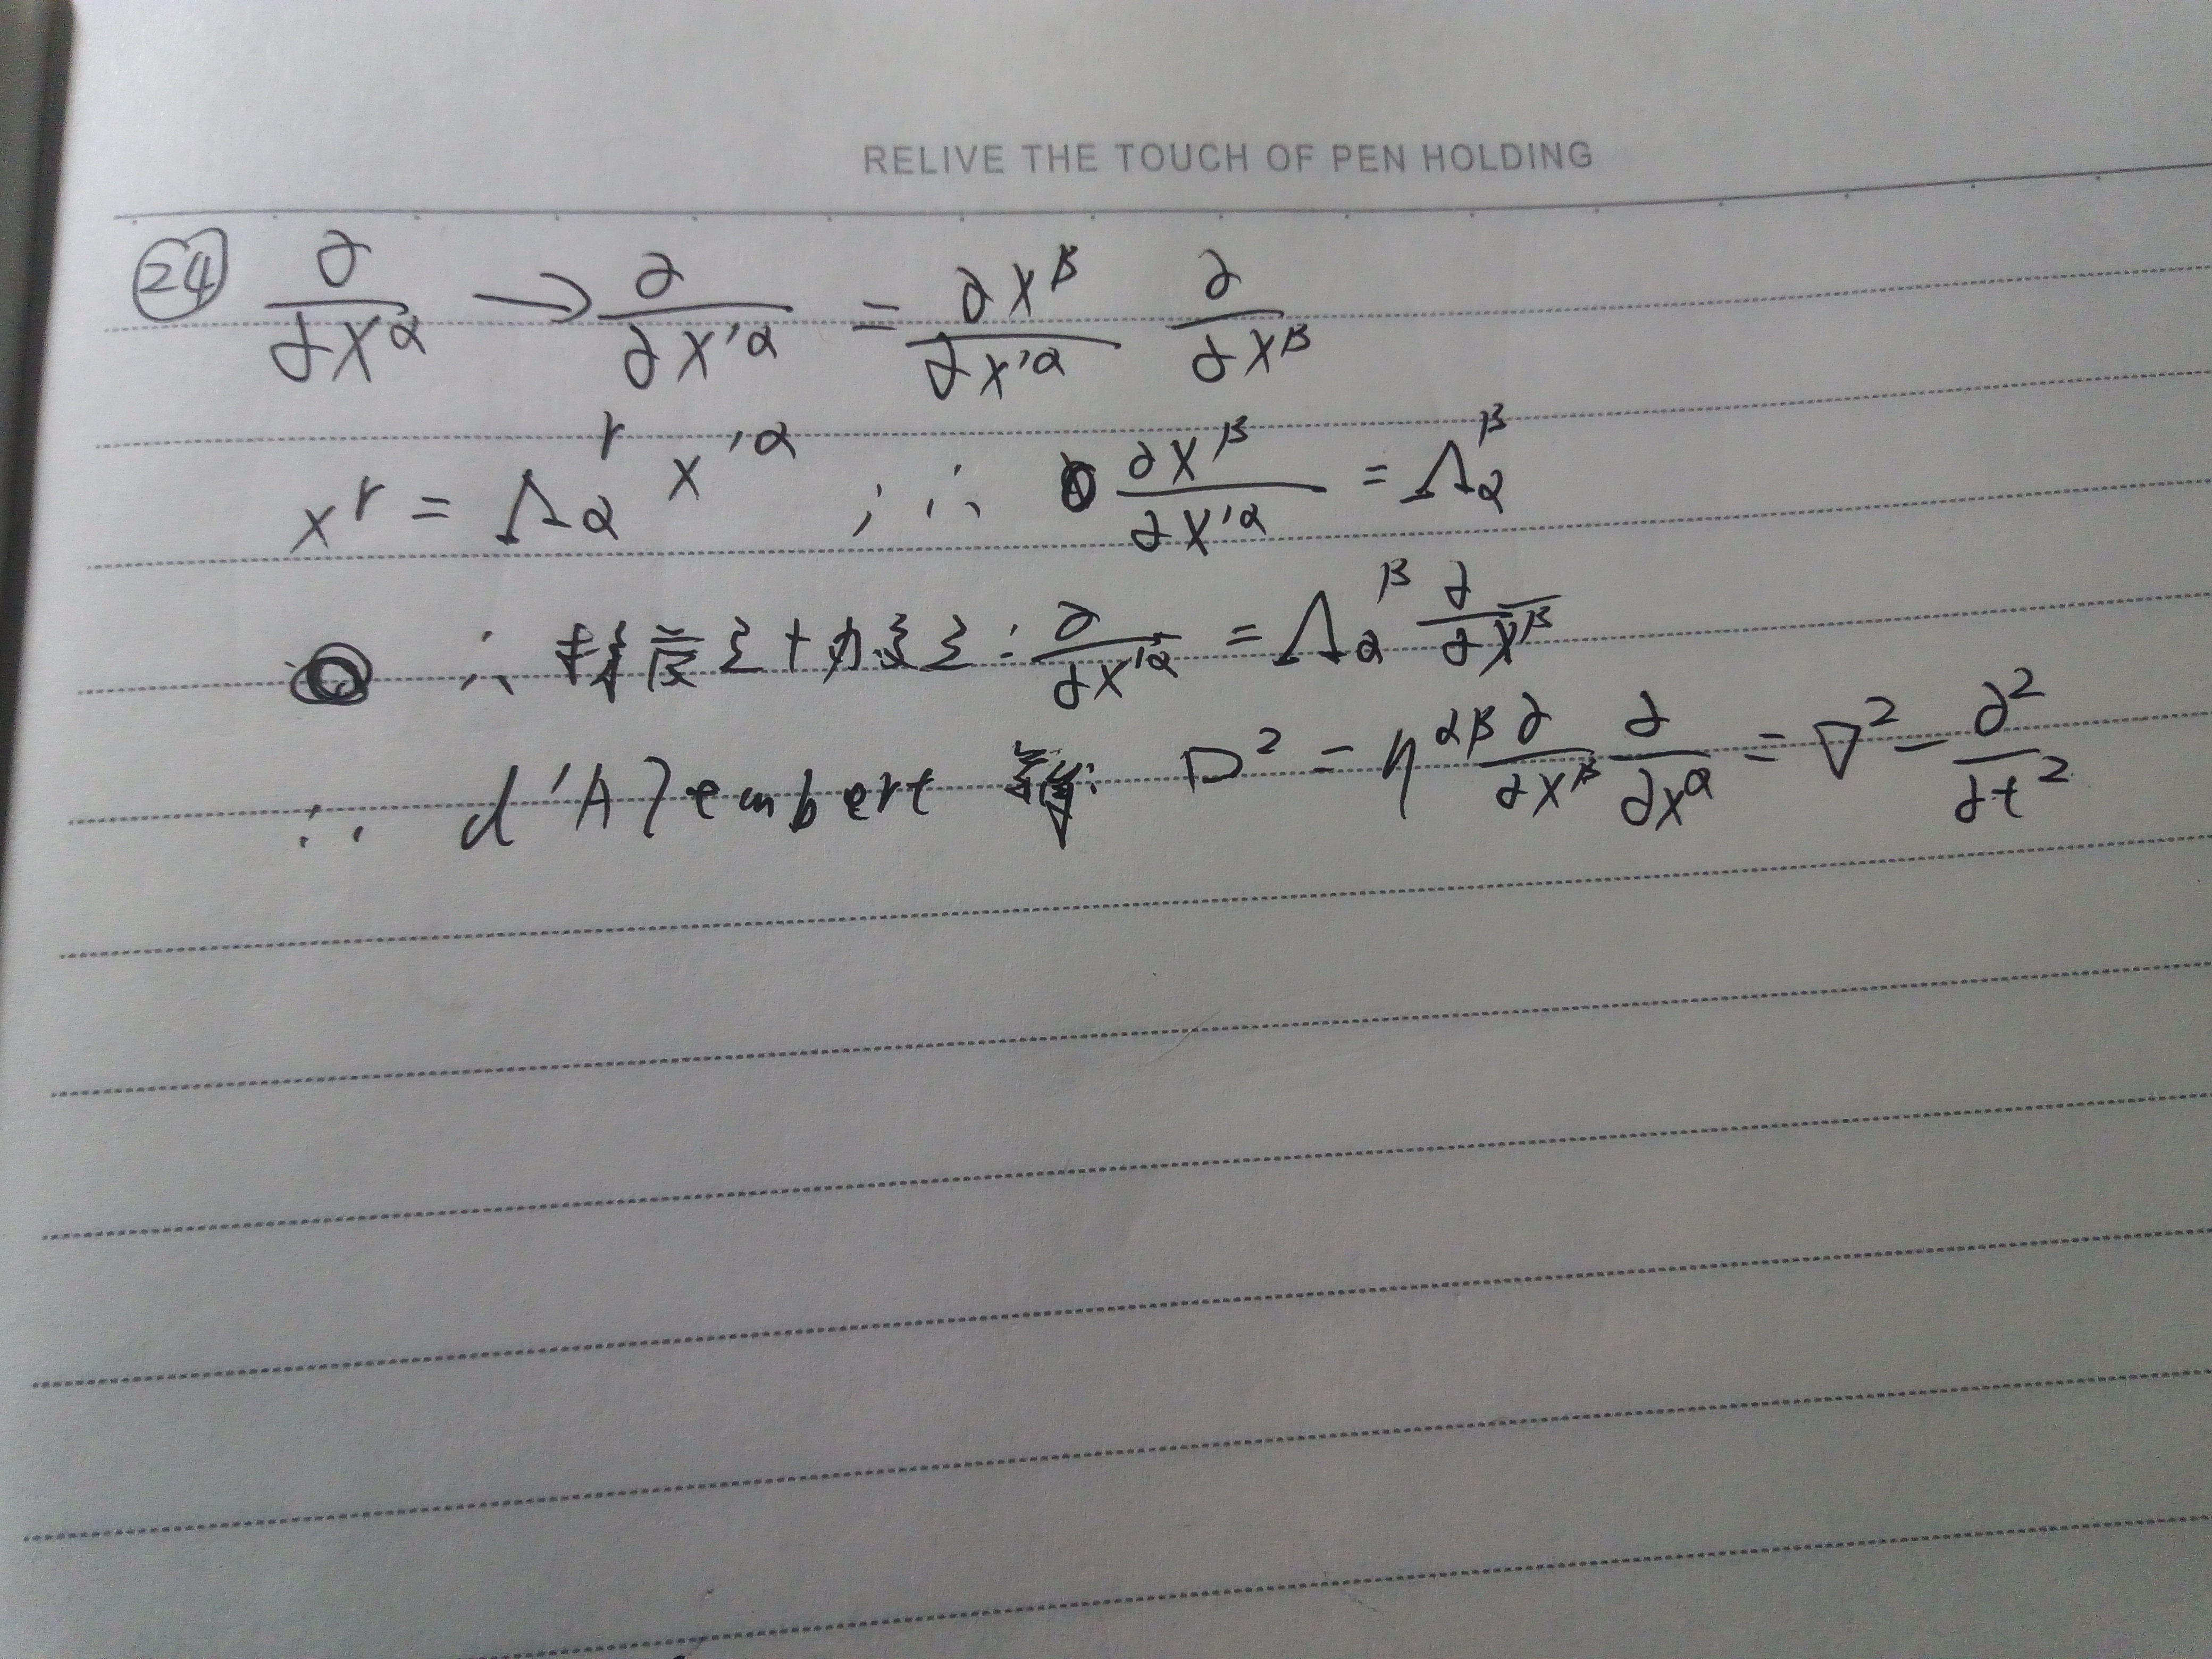 RELIVE THE TOUCH OF PEN HOLDING
㉔ ∂/∂x^α → ∂/∂x'^α = ∂x^β/∂x'^α ∂/∂x^β
x^r = Λ_α^r x'^α ; ∴ ∂x^β/∂x'^α = Λ_α^β
∴ : ∂/∂x'^α = Λ_α^β ∂/∂x^β
∴ d'Alembert □² = η^{αβ} ∂/∂x^β ∂/∂x^α = ∇² − ∂²/∂t²